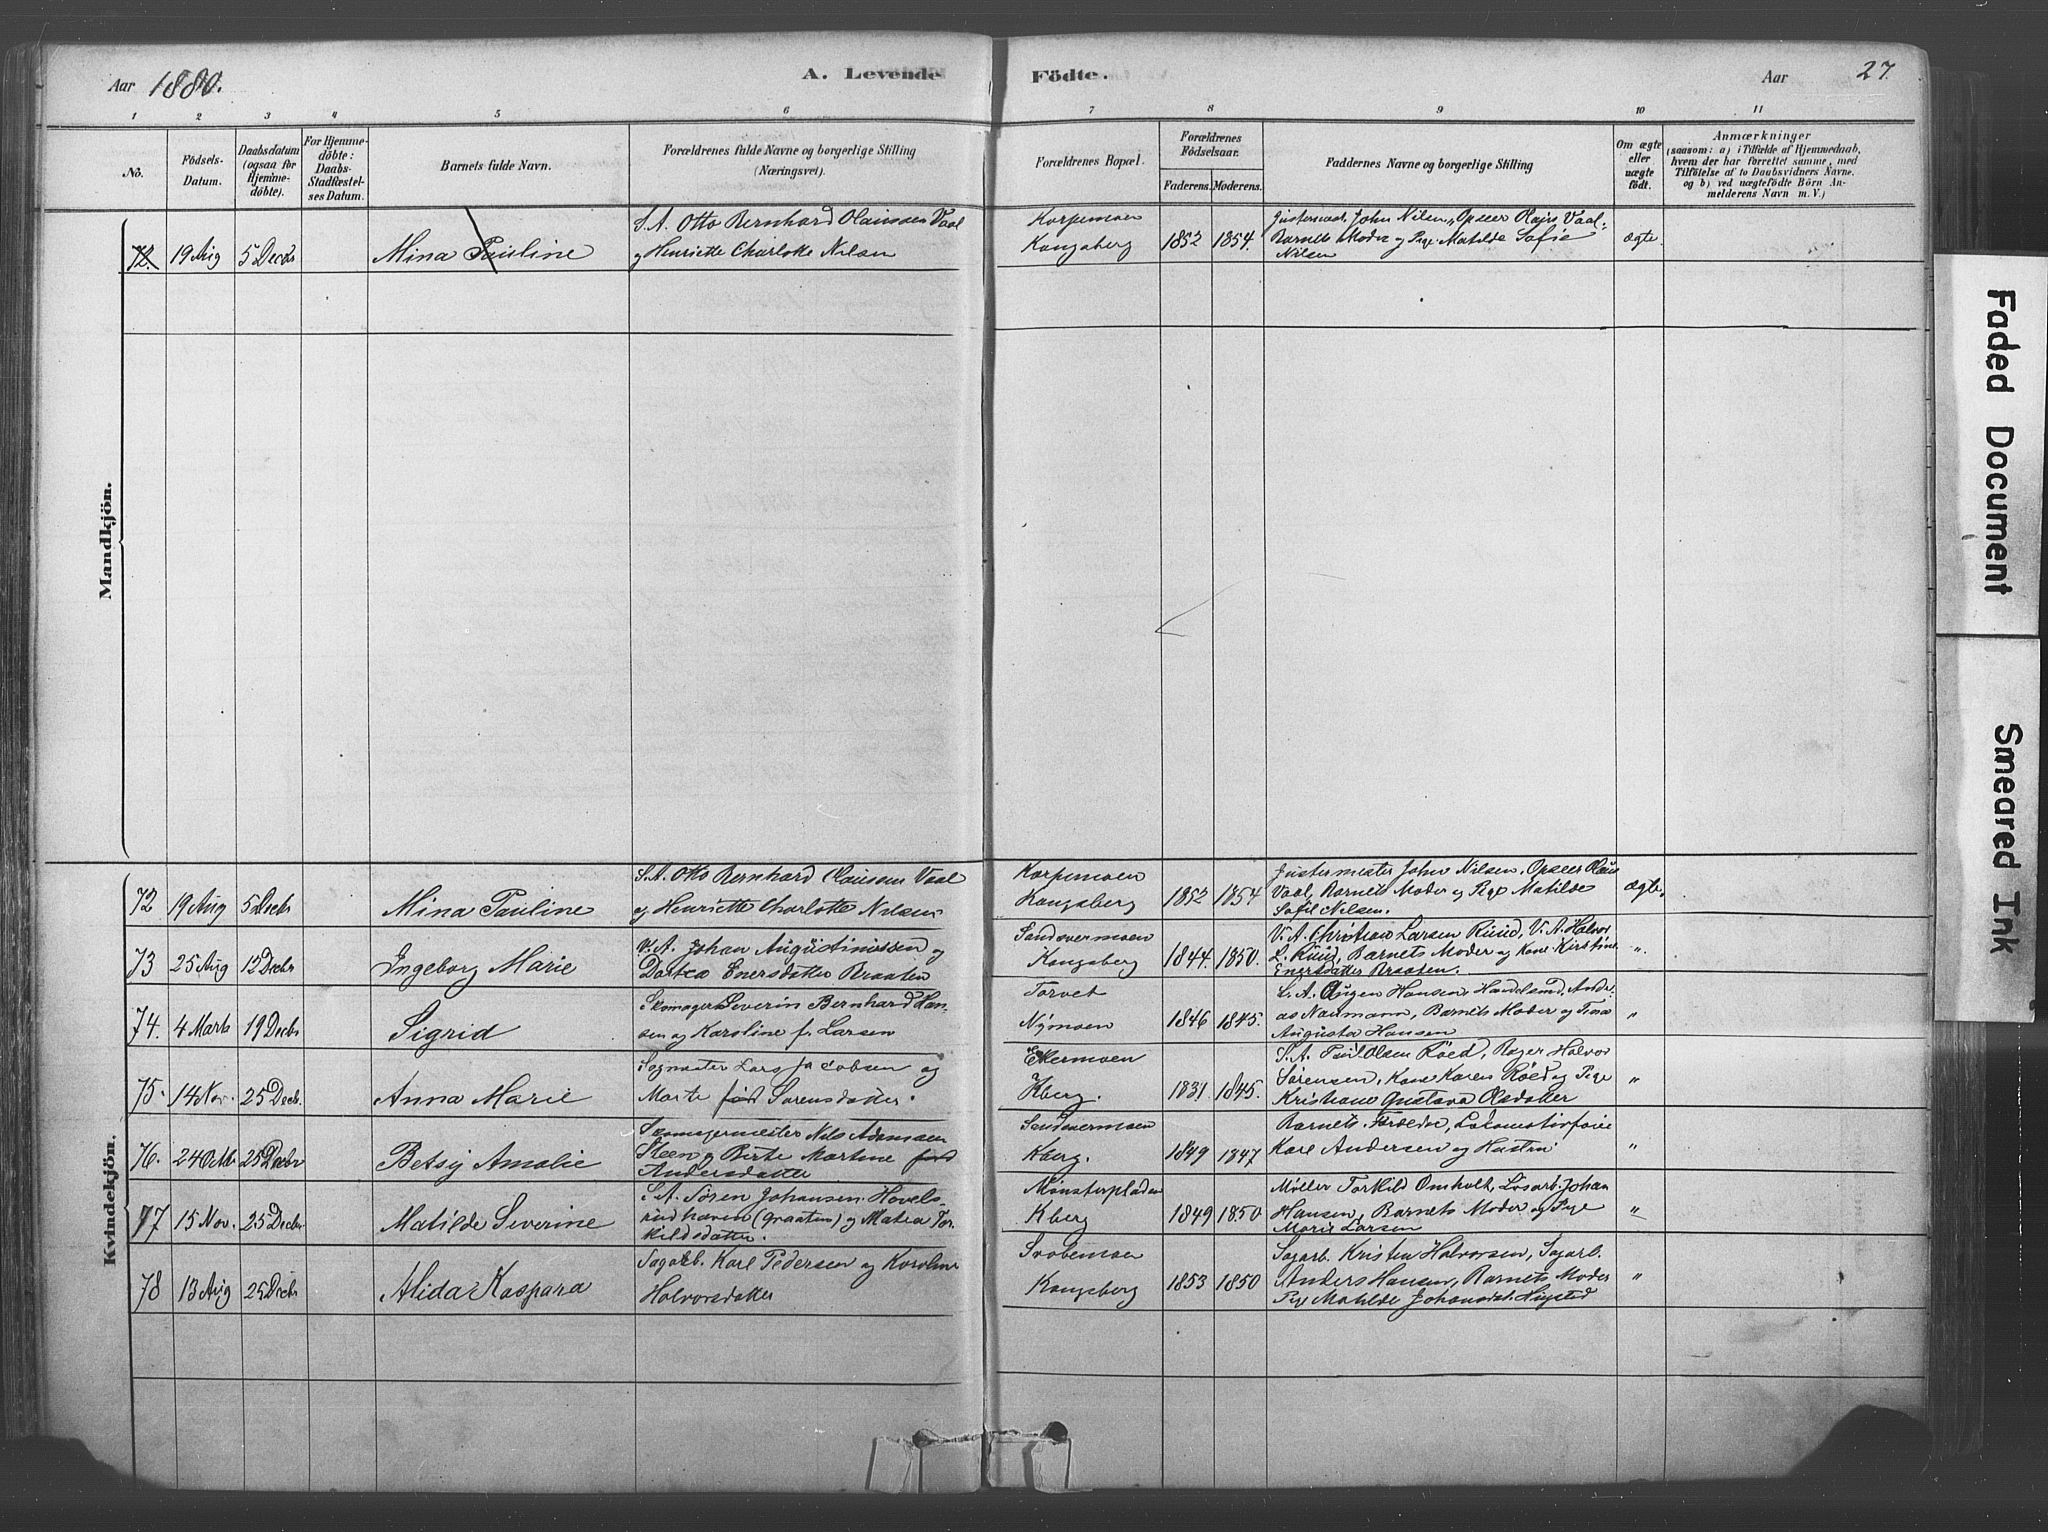 Aar 1880.
A. Levende
Födte.
Aar
27.
1 2 3 4 5 6 7 8 9 10 11
No.
Födsels-
Datum.
Daabsdatum
(ogsaa for
Hjemme-
döbte).
For Hjemme-
döbte:
Daabs-
Stadfæstel-
ses Datum.
Barnets fulde Navn.
Forældrenes fulde Navne og borgerlige Stilling
(Næringsvei).
Forældrenes Bopæl.
Forældrenes
Födselsaar.
Faderens. Moderens.
Faddernes Navne og borgerlige Stilling
Om ægte
eller
uægte
födt.
Anmærkninger
(saasom: a) i Tilfælde af Hjemmedaab,
hvem der har forrettet samme, med
Tilföielse af to Daabsvidners Navne.
og b) ved uægtefödte Börn An-
melderens Navn m. V.)
Mandkjön.
72. 19 Aug 5 Decbr Mina Pauline
S. A. Otto Bernhard Olaussen Vaal
og Henriette Charlotte Nilsen
Korpemoen
Kongsberg 1852 1854.
John Nilsen, Opseer Olaus Vaal.
Barnets Moder og Pige Matilde Sofie
Nilsen
ægte.
Kvindekjön.
72 19 Aug 5 Decbr Mina Pauline
S. A. Otto Bernhard Olaussen Vaal
og Henriette Charlotte Nilsen
Korpemoen
Kongsberg 1852 1854
Justermester John Nilsen, Opseer Olaus
Vaal, Barnets Moder og Pige Matilde
Sofie Nilsen.
ægte.
73 25 Aug 12 Decbr Ingeborg Marie
V. A. Johan Augustinussen og
Dortea Enersdatter Braaten
Sandsvermoen
Kongsberg 1844. 1850.
V. A. Christian Larsen Ruud, V. A. Halvor
L. Ruud, Barnets Moder og Kone Kirstine
Enersdatter Braaten.
"
74. 4 Marts 19 Decbr Sigrid
Skomager Severin Bernhard Han-
sen og Karoline f. Larsen
Torvet
Nymoen 1846 1845.
S. A. Hansen, Handelsmd. Andre-
as Naumann, Barnets Moder og
Augusta Hansen
"
75. 14 Nov. 25 Decb. Anna Marie
Lars Jacobsen og
Marte født Sørensdatter.
Ekermoen
Kberg. 1831. 1845.
S. A. Paul Olsen Røed, Bager Halvor
Sørensen, Kone Karen Røed og Pige
Kristiane Gustava Olsdatter
"
76. 24 Octb. 25 Decbr Betsy Amalie
Skomagermester Nils Adamsen
Steen og Birte Martine født
Andersdatter
Sandsvermoen
Kberg. 1849 1847
Barnets Forældre, Lokomotivfører
Karl Andersen og Hustru
"
77 15 Nov. 25 Decbr Matilde Severine
S. A. Søren Johansen Hovels-
rudhaven (Graaten) og Matea Tor-
kildsdatter.
Mønsterpladsen
Kberg 1849 1850
Møller Torkild Omholt, Løsarb. Johan
Hansen, Barnets Moder og Pige
Marie Larsen
"
78 13 Aug 25 Decbr Alida Kaspara
Sagarb. Karl Pedersen og Karoline
Halvorsdatter
Kongsberg 1853 1850
Sagarb. Kristen Halvorsen, Sagarb.
Anders Hansen, Barnets Moder
Pige Matilde Johansdt.
"
Faded Document
Smeared Ink